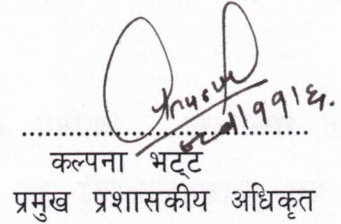 .......................................
कल्पना भट्ट
प्रमुख प्रशासकीय अधिकृत